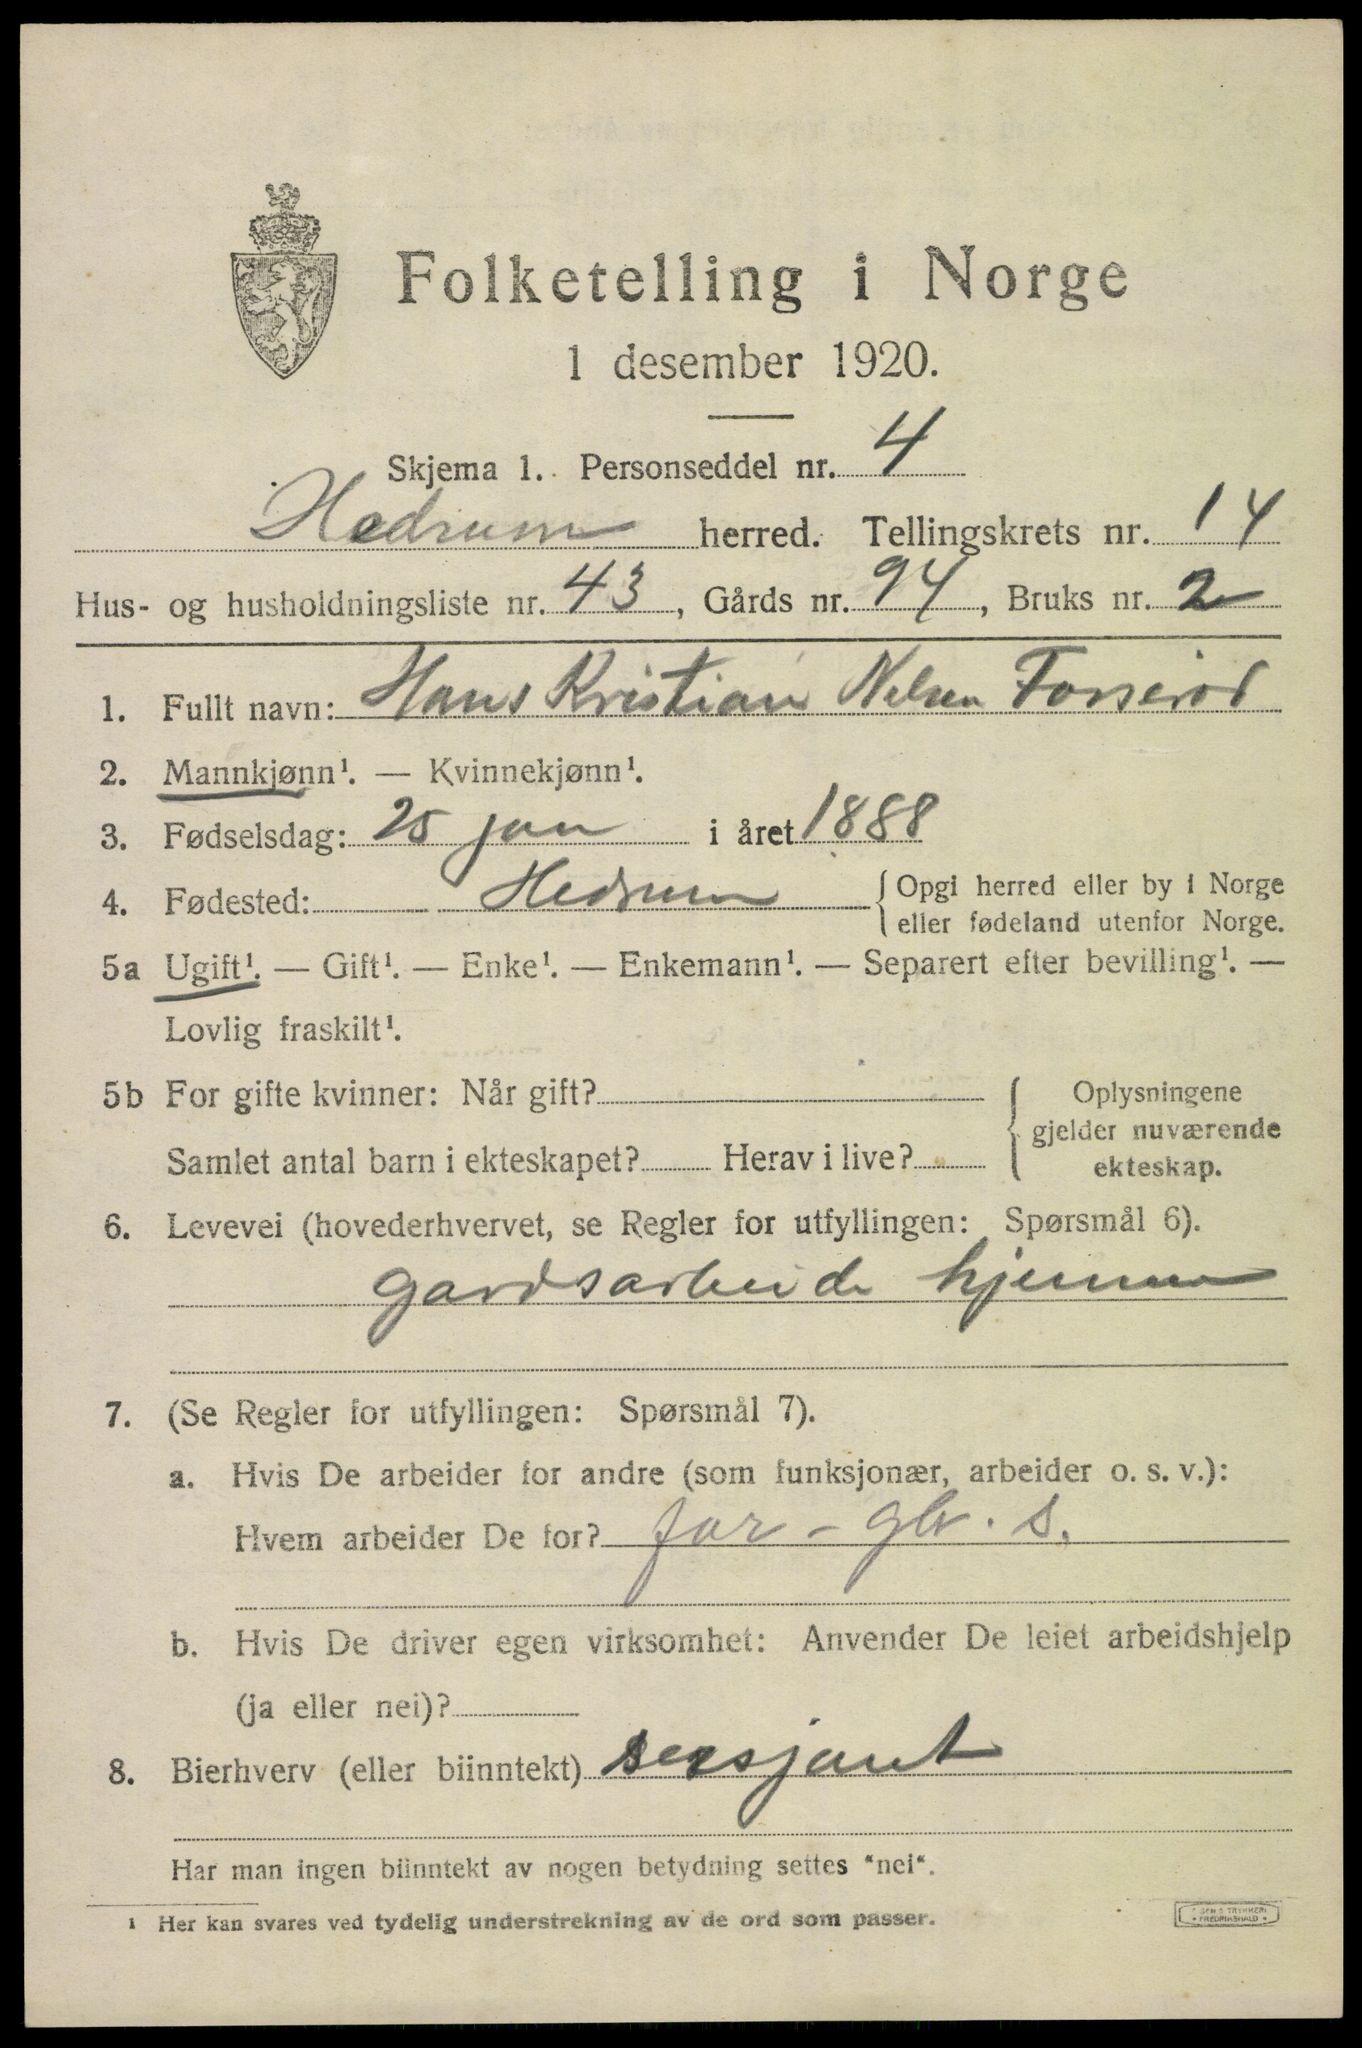 Folketelling i Norge
1 desember 1920.
Skjema 1. Personseddel nr. 4
Hedrum herred. Tellingskrets nr. 14
Hus- og husholdningsliste nr. 43, Gårds nr. 94, Bruks nr. 2
1. Fullt navn: Hans Kristian Nelsen Forserød
2. Mannkjønn¹. — Kvinnekjønn¹.
3. Fødselsdag: 25 jan i året 1888
4. Fødested: Hedrum {Opgi herred eller by i Norge
eller fødeland utenfor Norge.
5a Ugift¹. — Gift¹. — Enke¹. — Enkemann¹. — Separert efter bevilling¹. —
Lovlig fraskilt¹.
5b For gifte kvinner: Når gift?
Samlet antal barn i ekteskapet? Herav i live?
Oplysningene
gjelder nuværende
ekteskap.
6. Levevei (hovederhvervet, se Regler for utfyllingen: Spørsmål 6).
gardsarbeide hjemme
7. (Se Regler for utfyllingen: Spørsmål 7).
a. Hvis De arbeider for andre (som funksjonær, arbeider o. s. v.):
Hvem arbeider De for? far - gbr. s.
b. Hvis De driver egen virksomhet: Anvender De leiet arbeidshjelp
(ja eller nei)?
8. Bierhverv (eller biinntekt) sersjant
Har man ingen biinntekt av nogen betydning settes "nei".
¹ Her kan svares ved tydelig understrekning av de ord som passer.
TRYKKERI
FREDRIKSHALD